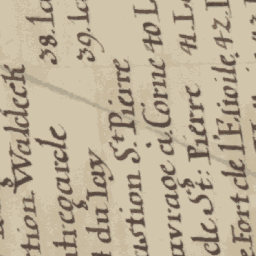 tion Waldeck 38. la
ntregarde 39. la
du lay
astion St. Pierre
uvrage à Corne 40 L
de St: Pierre 41 Le
e Fort de l'Etoile. 42. I